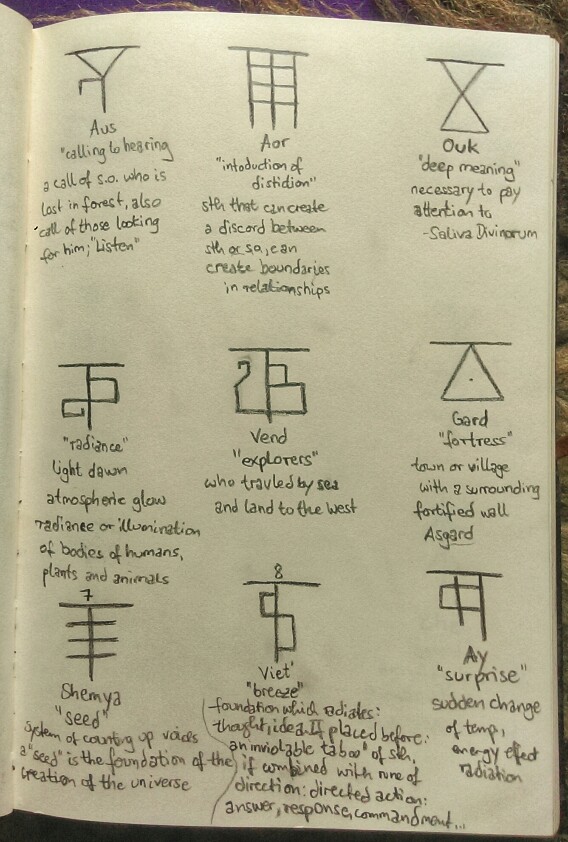 Aus
"calling to hearing
a call of s.o. who is
lost in forest, also
call of those looking
for him; "Listen"
Aor
"intoduction of
distidion"
sth that can create
a discord between
sth or so, can
create boundaries
in relationships
Ouk
"deep meaning"
necessary to pay
attention to
-Saliva Divinorum
"radiance"
light dawn
atmospheric glow
radiance or illumination
of bodies of humans,
plants and animals
Vend
"explorers"
who travled by sea
and land to the west
Gard
"fortress"
town or village
with a surrounding
fortified wall
Asgard
7
Shemya
"seed"
system of counting up voids
a "seed" is the foundation of the
creation of the universe
8
Viet'
"breeze"
foundation which radiates:
thought, idea. If placed before:
an inviolable taboo" of sth,
if combined with rune of
direction: directed action:
answer, response, commandment...
Ay
"surprise"
sudden change
of temp,
energy effect
radiation